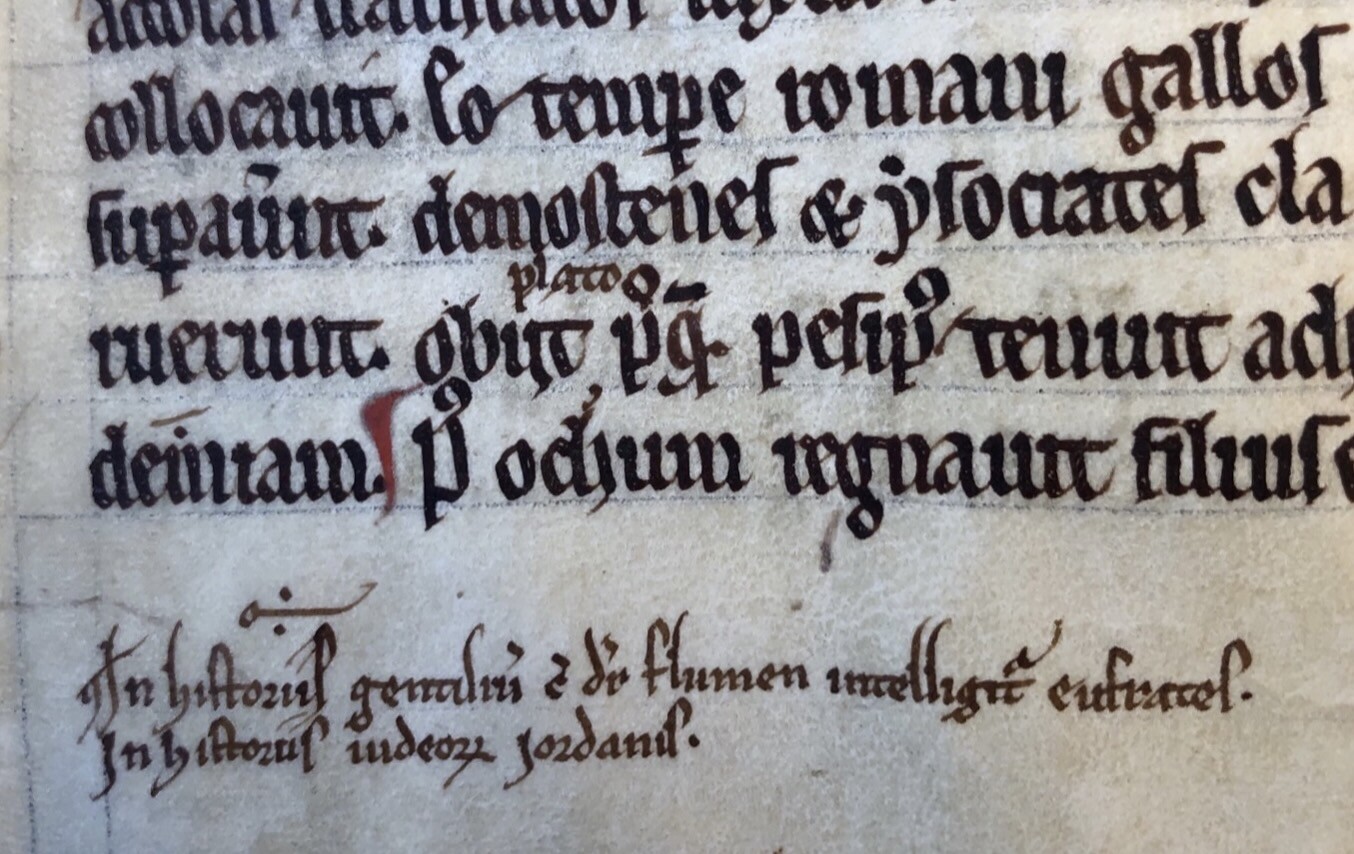 collocauit. Eo tempe romani gallos
supauunt. demostenes & ysocrates cla
plato
ruerunt. obijt pq. pesip⁹ tenuit ach
demiam. p⁹ ochum regnauit filius
In historiis gentiliū c̄ dr̄ flumen intelligit᷑ eufrates.
In historiis iudeoꝝ iordanis.